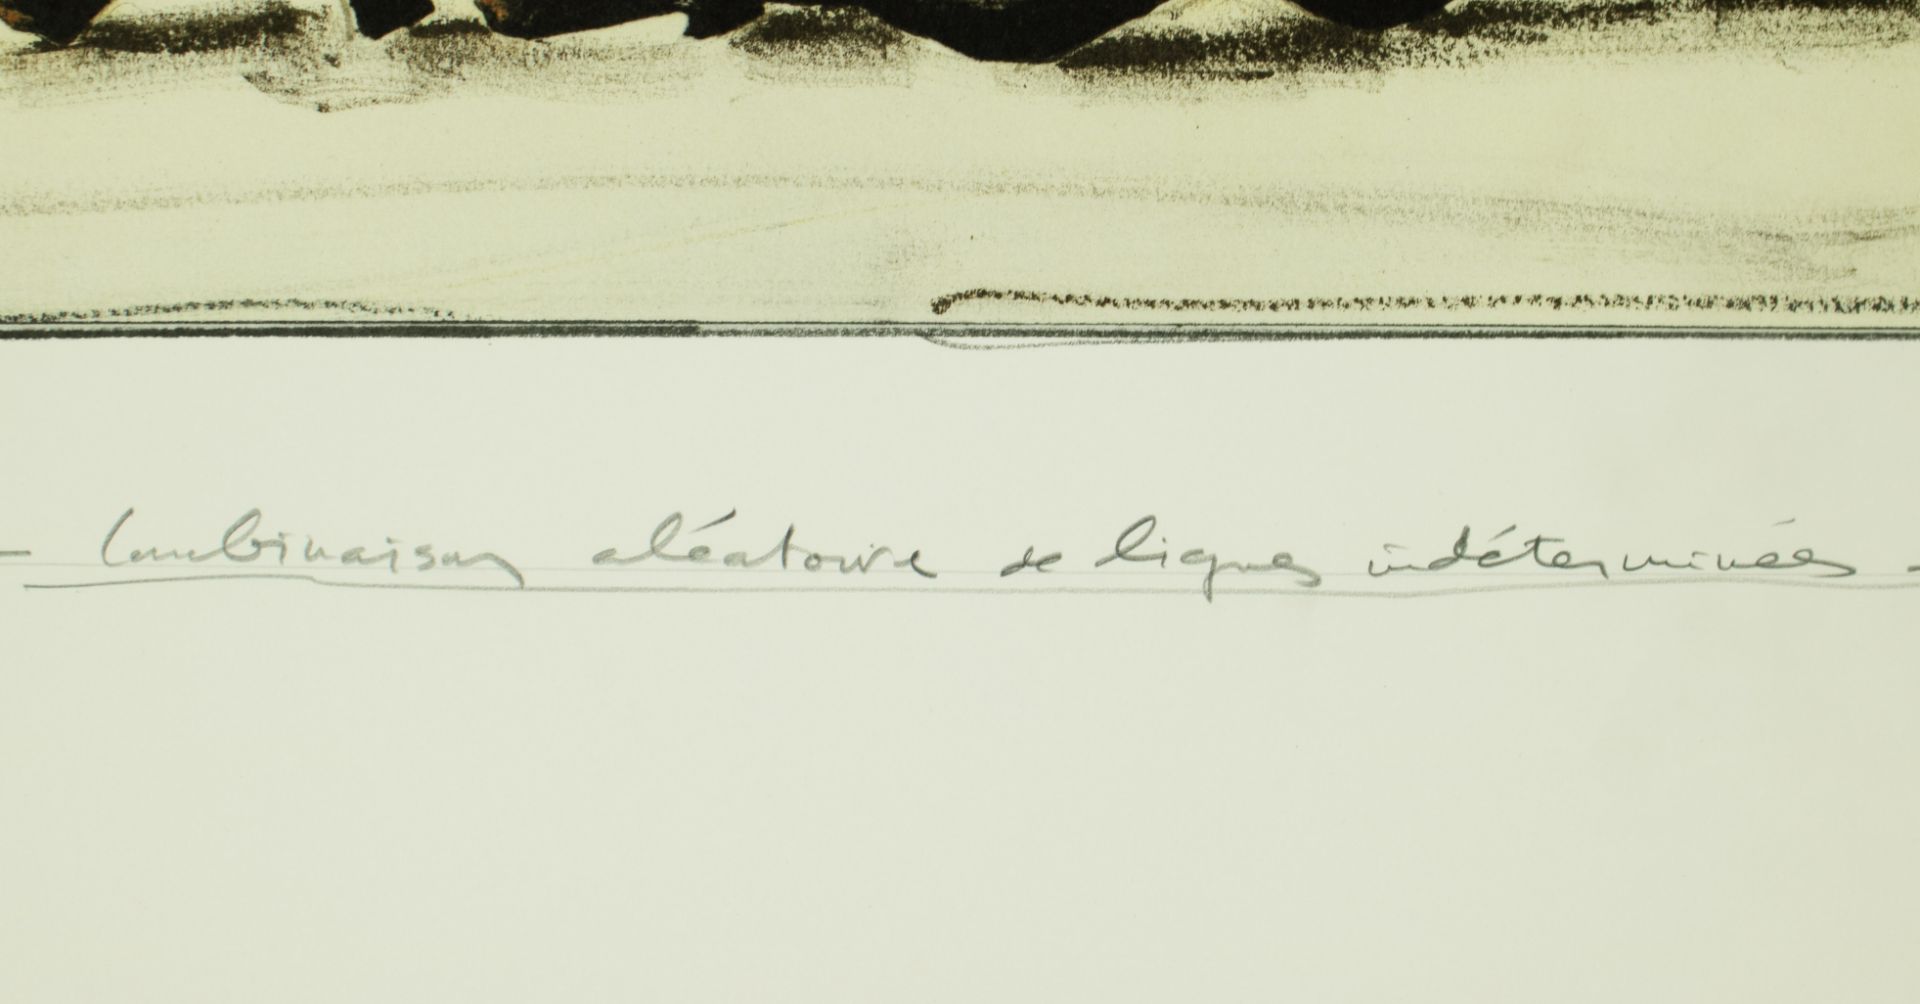 - Combinaison aléatoire de lignes indéterminées -